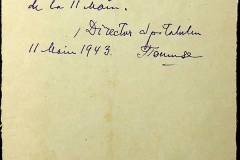 de la 11 Main.
Director Spitalului
11 Main 1943.